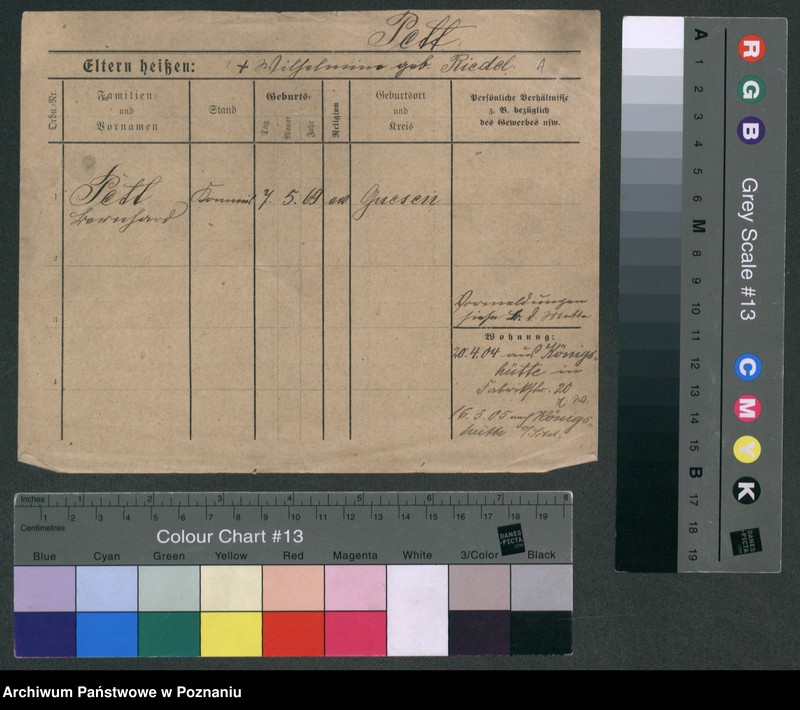 Pett
Eltern heißen: + Wilhelmine geb. Riedel.
Ordn.-Nr.
Familien-
und
Vornamen
Stand
Geburts-
Tag
Monat
Jahr
Religion
Geburtsort
und
Kreis
Persönliche Verhältnisse
z. B. bezüglich
des Gewerbes usw.
1
Pett
Bernhard
7. 5. 69 ev Gnesen
2
3
4
Vormeldungen
siehe b. d. Mutter
Wohnung:
20.4.04 aus Königs-
hütte in
Fabrikstr. 20
16.5.05 nach Königs-
hütte
Inches 1 2 3 4 5 6 7 8
1 2 3 4 5 6 7 8 9 10 11 12 13 14 15 16 17 18 19
Centimetres
Colour Chart #13
DANES
PICTA
.COM
Blue Cyan Green Yellow Red Magenta White 3/Color Black
A 1 2 3 4 5 6 M 8 9 10 11 12 13 14 15 B 17 18 19
R
G
B
Grey Scale #13
C
M
Y
K
DANES
PICTA
.COM
Archiwum Państwowe w Poznaniu